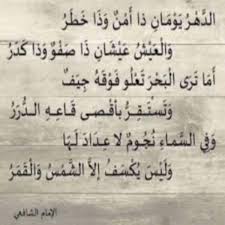 الدَّهْرُ يَوْمَانِ ذَا أَمْنٌ وَذَا خَطَرُ
وَالْعَيْشُ عَيْشَانِ ذَا صَفْوٌ وَذَا كَدَرُ
أَمَا تَرَى الْبَحْرَ تَعْلُو فَوْقَهُ جِيَفٌ
وَتَسْتَقِرُّ بِأَقْصَى قَاعِهِ الدُّرَرُ
وَفِي السَّمَاءِ نُجُومٌ لَا عِدَادَ لَهَا
وَلَيْسَ يُكْسَفُ إِلَّا الشَّمْسُ وَالْقَمَرُ
الإمام الشافعي